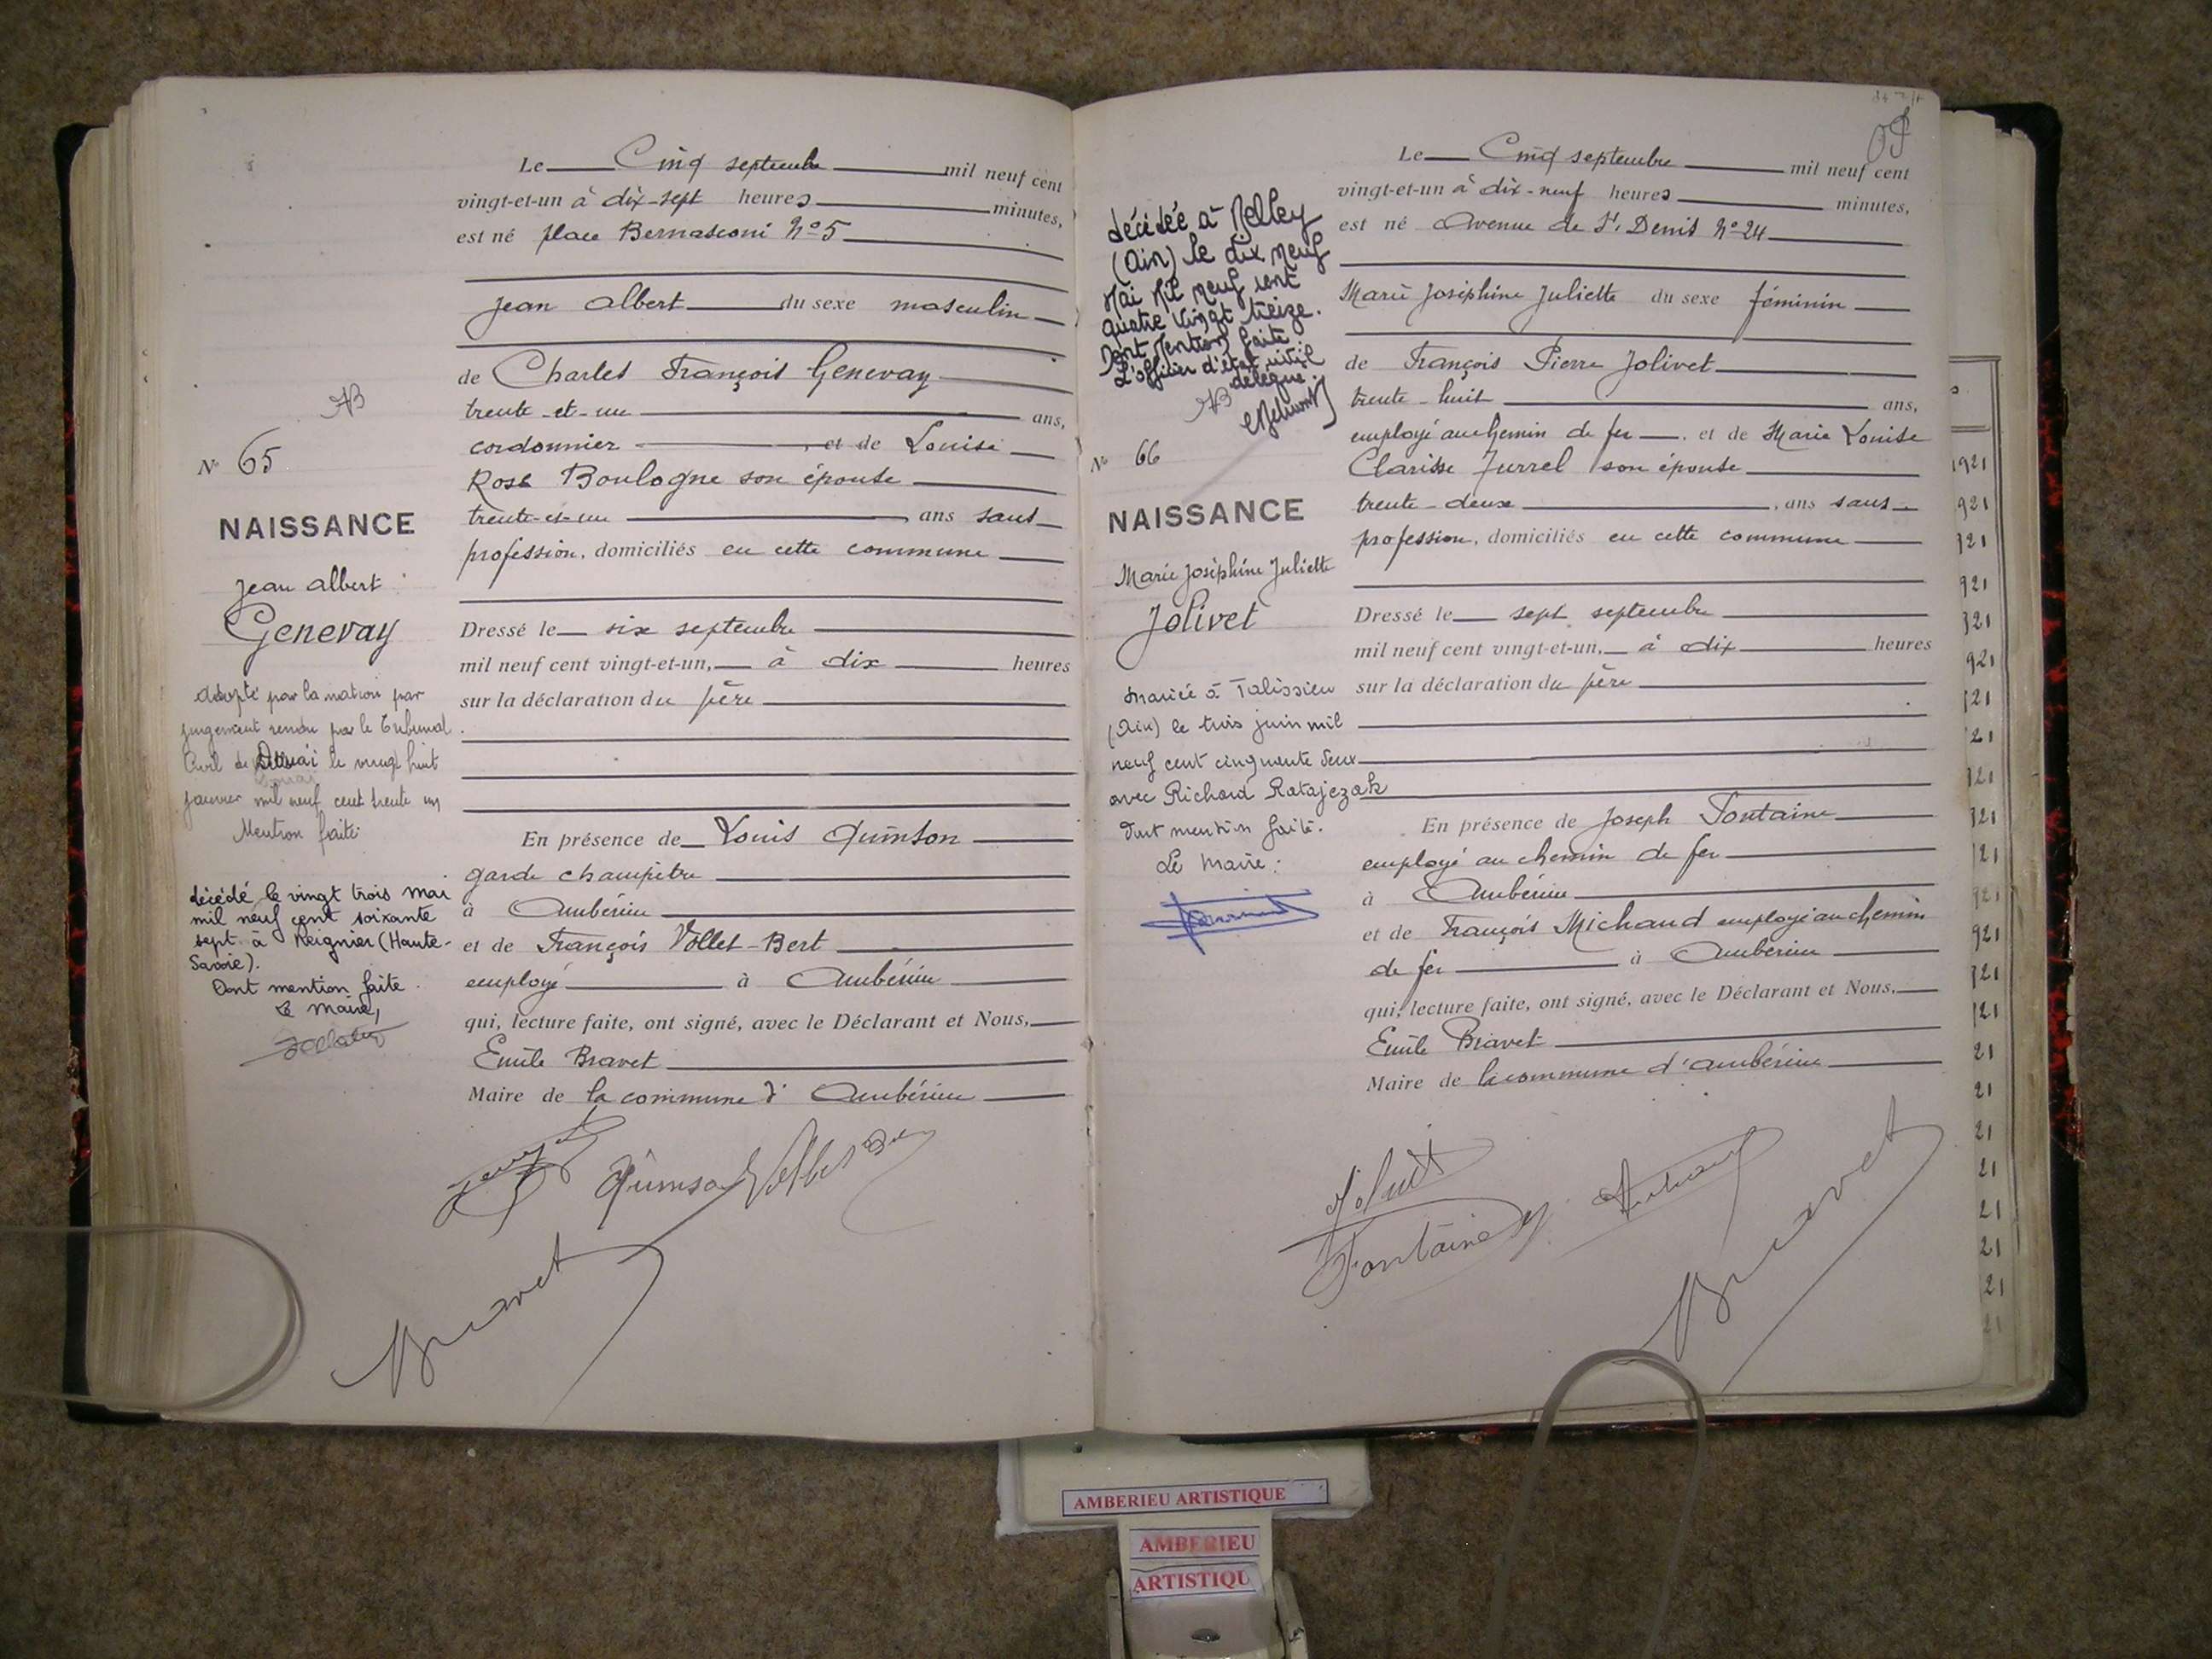 AB
Nº 65
NAISSANCE
Jean Albert
Genevay
Adopté par la nation par
jugement rendu par le Tribunal
Civil de Douai le vingt huit
janvier mil neuf cent trente un
Mention faite
décédé le vingt trois mai
mil neuf cent soixante
sept à Reignier (Haute-
Savoie).
Dont mention faite.
Le Maire,
Le Cinq septembre mil neuf cent
vingt-et-un à dix-sept heures minutes,
est né place Bernasconi Nº 5
Jean Albert du sexe masculin
de Charles François Genevay
trente-et-un ans,
cordonnier, et de Louise
Rose Boulogne son épouse
trente-et-un, ans sans
profession, domiciliés en cette commune
Dressé le six septembre
mil neuf cent vingt-et-un, à dix heures
sur la déclaration du père
En présence de Louis Quinson
garde champêtre
à Ambérieu
et de François Vollet-Bert
employé à Ambérieu
qui, lecture faite, ont signé, avec le Déclarant et Nous,
Emile Bravet
Maire de la commune d'Ambérieu
Quinson
Bravet
décédée à Belley
(Ain) le dix neuf
Mai Mil neuf cent
quatre vingt treize.
Dont Mention faite
L'officier d'état civil
délégué.
AB
Nº 66
NAISSANCE
Marie Joséphine Juliette
Jolivet
Mariée à Talissieu
(Ain) le trois juin mil
neuf cent cinquante deux
avec Richard Ratajczak
Dont mention faite.
Le Maire:
Le Cinq septembre mil neuf cent
vingt-et-un à dix-neuf heures minutes,
est né Avenue de St Denis Nº 24
Marie Joséphine Juliette du sexe féminin
de François Pierre Jolivet
trente-huit ans,
employé au chemin de fer, et de Marie Louise
Clarisse Jurrel son épouse
trente-deux, ans sans
profession, domiciliés en cette commune
Dressé le sept septembre
mil neuf cent vingt-et-un, à dix heures
sur la déclaration du père
En présence de Joseph Fontaine
employé au chemin de fer
à Ambérieu
et de François Michaud employé au chemin
de fer à Ambérieu
qui, lecture faite, ont signé, avec le Déclarant et Nous,
Emile Bravet
Maire de la commune d'Ambérieu
Jolivet
Fontaine
Bravet
1921
921
921
921
AMBERIEU ARTISTIQUE
AMBERIEU
ARTISTIQU